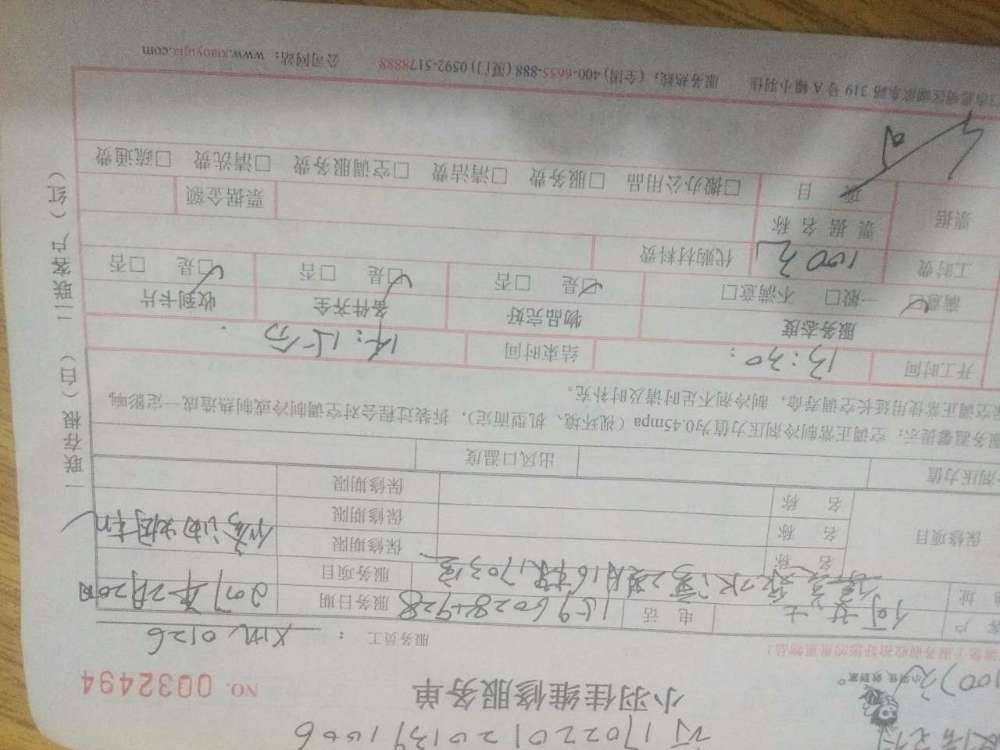 行1702201201391006
小羽佳维修服务单
NO. 0032494
100元
小羽佳 效到家®
服务员工： XM 0126
客户 何女士 电话 15960284928 服务日期 2017年2月20日
址 16栋1703室 服务项目 修油烟机
保修项目
名称 保修期限
名称 保修期限
名称 保修期限
剂压力值 出风口温度
服务温馨提示：空调正常制冷剂压力值为0.45mpa（视环境、机型而定），拆装过程会对空调制冷或制热造成一定影响，
空调正常使用延长空调寿命，制冷剂不足时请及时补充。
开工时间 13:30 结束时间 14:15分
服务态度 物品完好 备件齐全 收到卡片
满意☑ 一般□ 不满意□ ☑是 □否 ☑是 □否 ☑是 □否
工时费 100元 代购材料费
票据 票据名称 票据金额
项目 □搬办公用品 □服务费 □清洁费 □空调服务费 □清洗费 □疏通费
319号A幢小羽佳 服务热线：（全国）400-6655-888（厦门）0592-5178888 公司网站：www.xiaoyujia.com
一联存根（白） 二联客户（红）